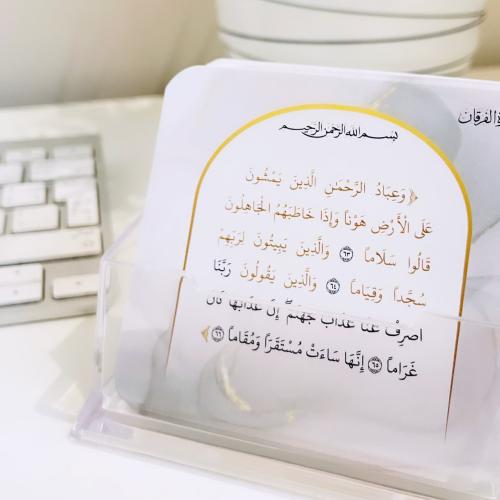 بسم الله الرحمن الرحيم
﴿وَعِبَادُ الرَّحْمَٰنِ الَّذِينَ يَمْشُونَ
عَلَى الْأَرْضِ هَوْنًا وَإِذَا خَاطَبَهُمُ الْجَاهِلُونَ
قَالُوا سَلَامًا ۝٦٣ وَالَّذِينَ يَبِيتُونَ لِرَبِّهِمْ
سُجَّدًا وَقِيَامًا ۝٦٤ وَالَّذِينَ يَقُولُونَ رَبَّنَا
اصْرِفْ عَنَّا عَذَابَ جَهَنَّمَ ۖ إِنَّ عَذَابَهَا كَانَ
غَرَامًا ۝٦٥ إِنَّهَا سَاءَتْ مُسْتَقَرًّا وَمُقَامًا ۝٦٦﴾
الفرقان